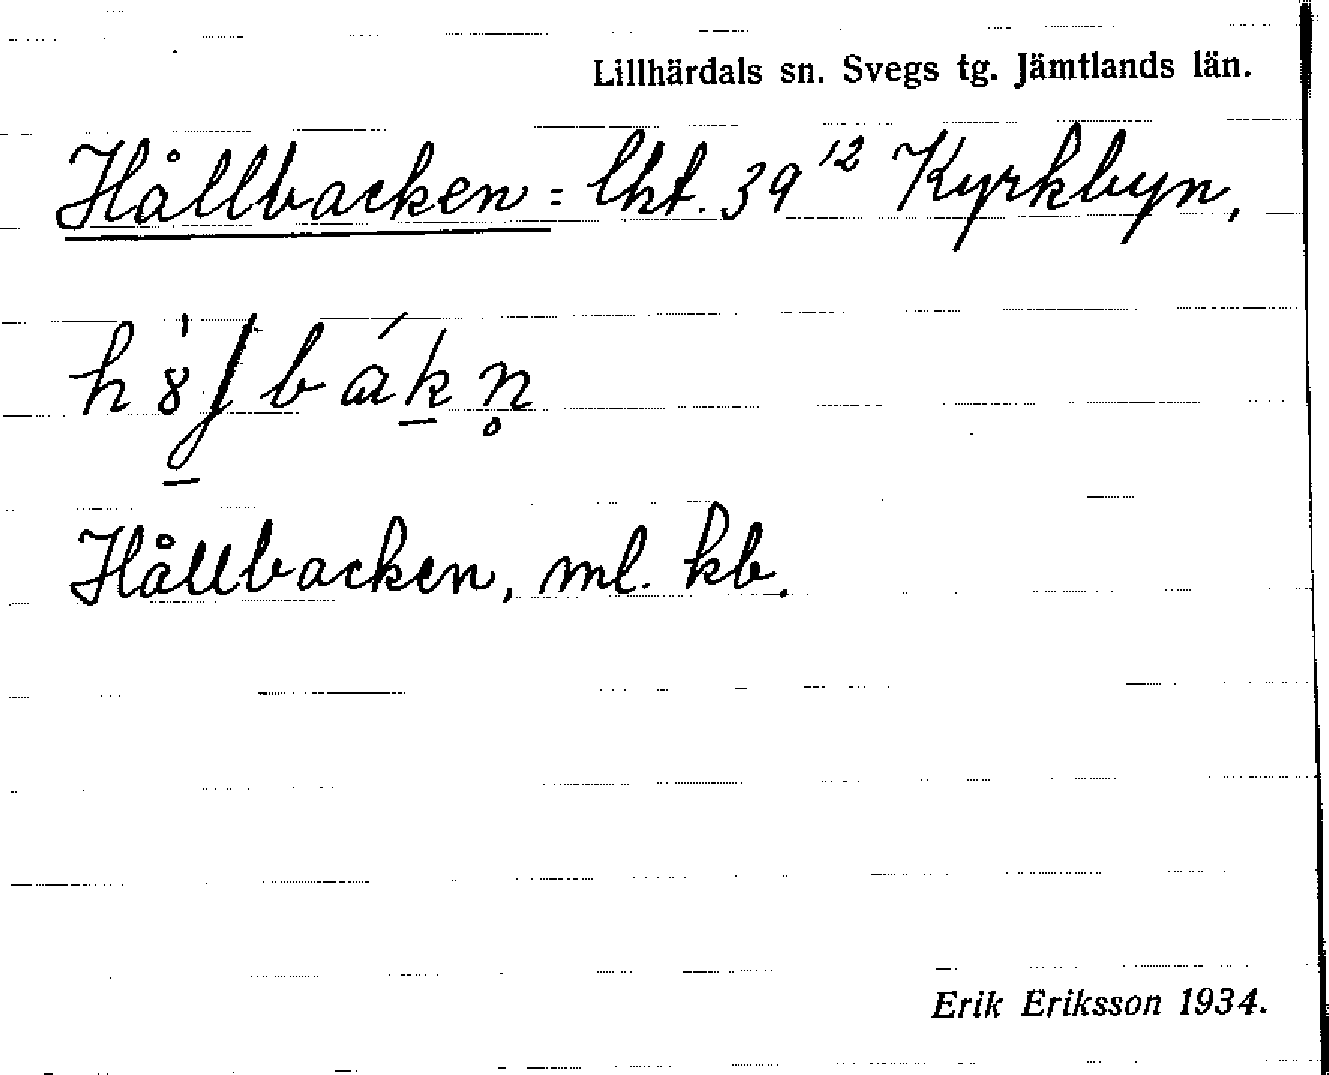 Lillhärdals sn. Svegs tg. Jämtlands län.
Hållbacken = lht. 39¹² Kyrkbyn,
Hållbacken, ml. kb.
Erik Eriksson 1934.